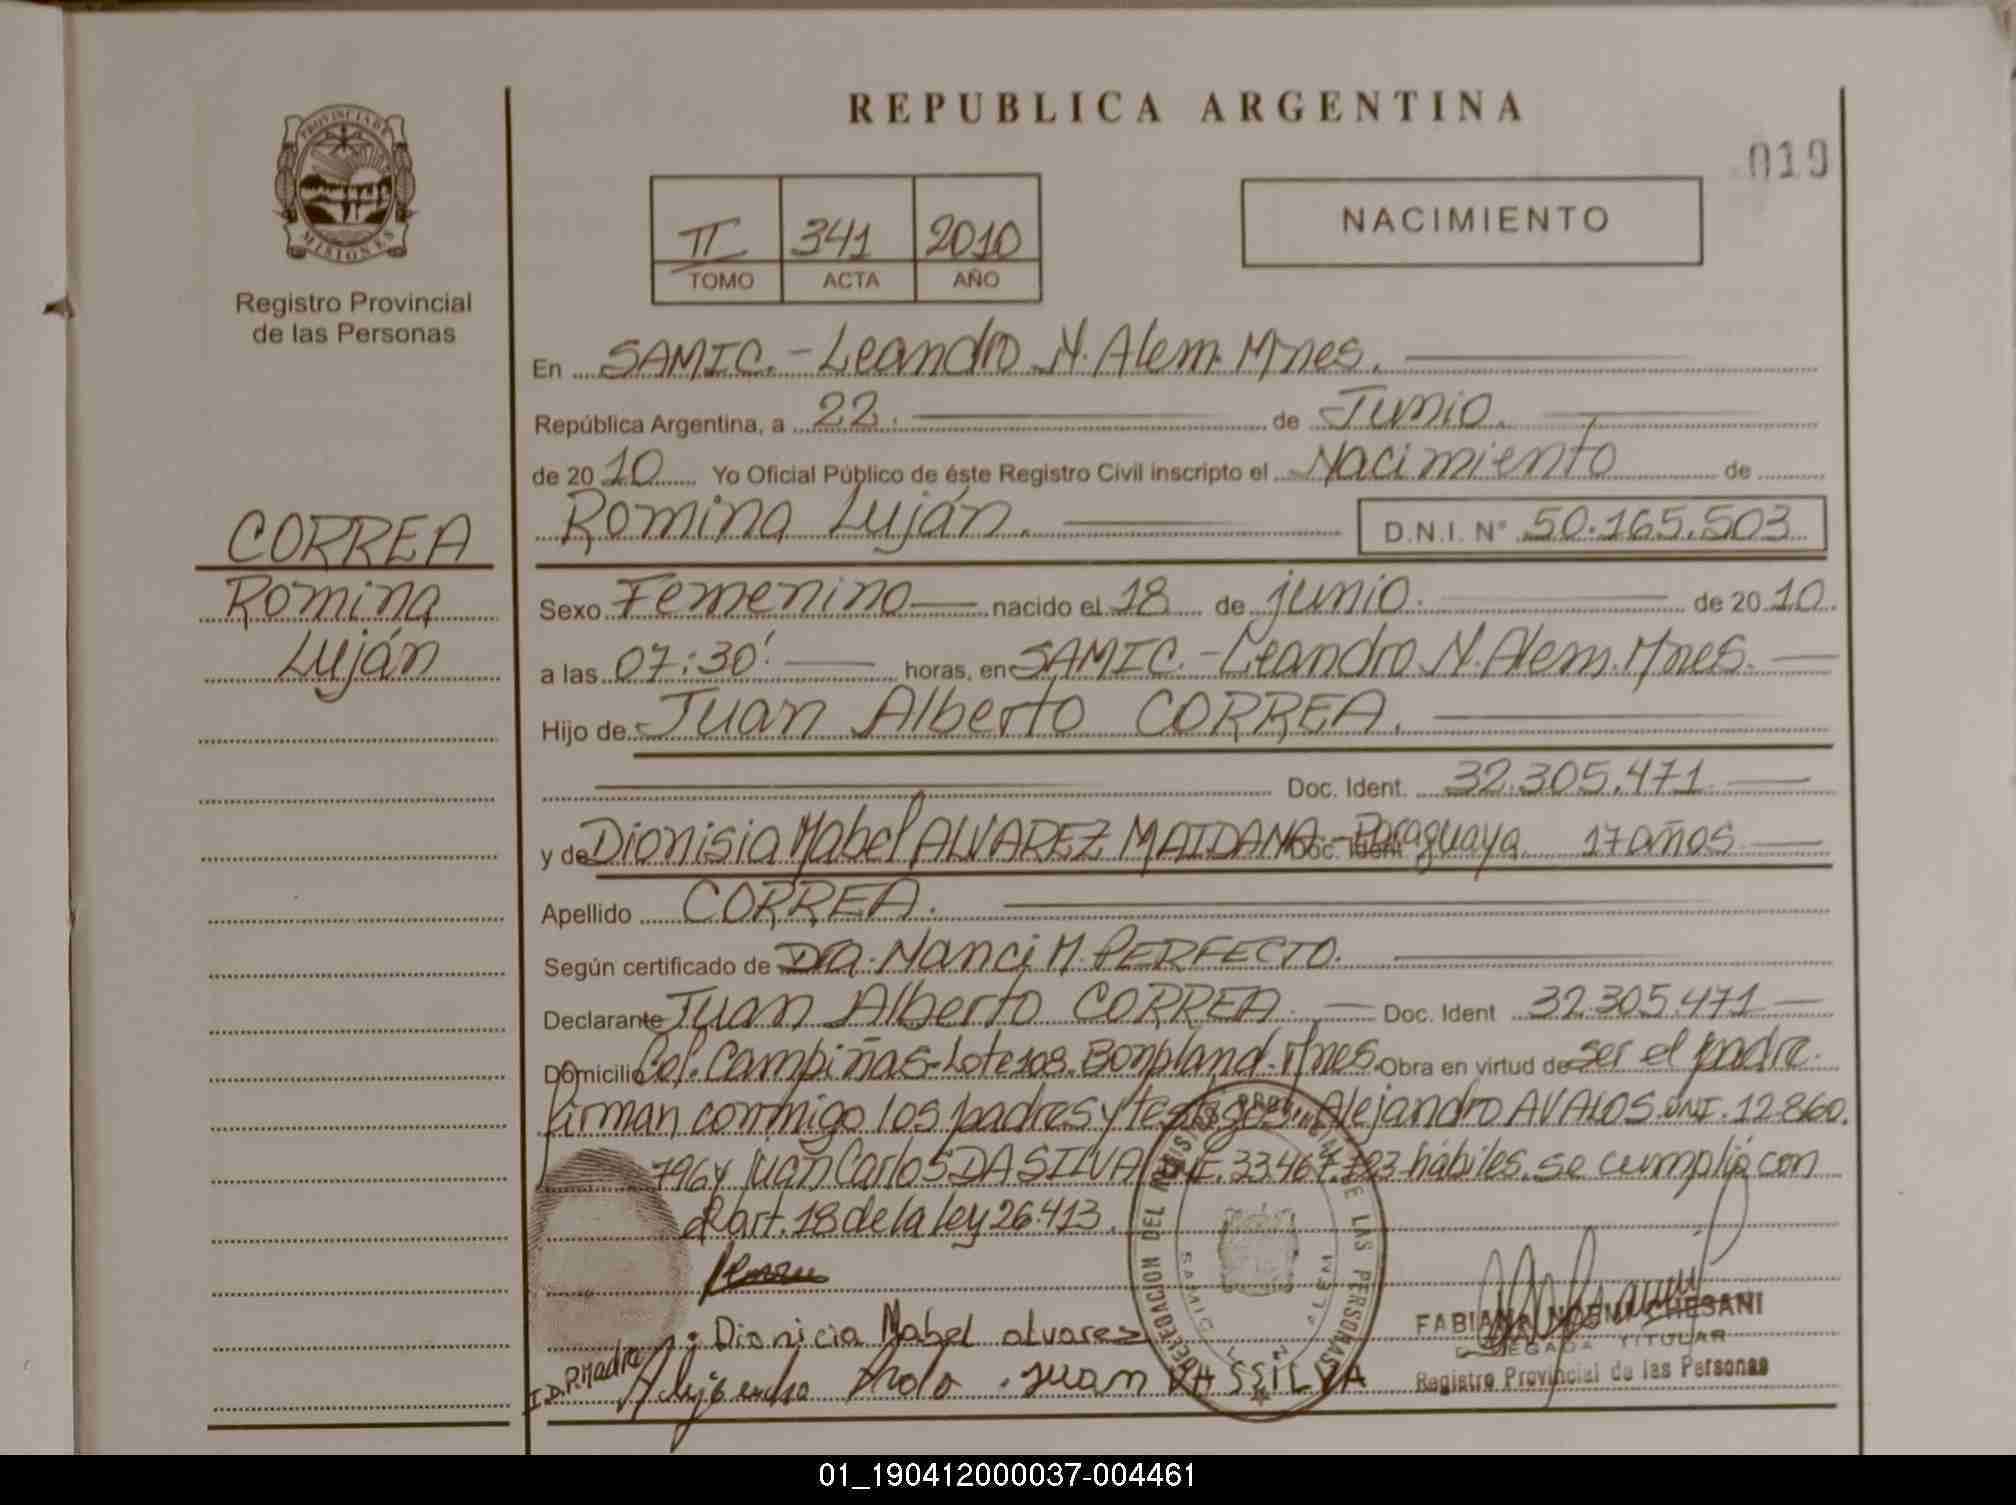 REPUBLICA ARGENTINA
019
PROVINCIA DE
MISIONES
Registro Provincial
de las Personas
II 341 2010
TOMO ACTA AÑO
NACIMIENTO
En SAMIC.-Leandro N. Alem. Mnes.
República Argentina, a 22. de Junio.
de 2010 Yo Oficial Público de éste Registro Civil inscripto el Nacimiento de
Romina Luján. D.N.I. N° 50.165.503
CORREA
Romina
Luján
Sexo Femenino nacido el 18 de junio. de 2010.
a las 07:30' horas, en SAMIC.-Leandro N. Alem. Mnes.
Hijo de Juan Alberto CORREA.
Doc. Ident. 32.305.471
y de Dionisia Mabel ALVAREZ MAIDANA-Paraguaya Doc. Ident 17 años
Apellido CORREA.
Según certificado de Dra. Nanci M. PERFECTO.
Declarante Juan Alberto CORREA. Doc. Ident 32.305.471
Domicilio Col. Campiñas-Lote 108. Bonpland. Mnes. Obra en virtud de ser el padre.
firman conmigo los padres y testigos: Alejandro AVALOS DNI. 12.860.
796 y Juan Carlos DA SILVA DNI. 33.467. hábiles, se cumplió con
el art. 18 de la ley 26.413.
Dionicia Mabel alvarez
I.D.P. Madre
Juan DA SSILVA
DELEGACION DEL REGISTRO PROVINCIAL DE LAS PERSONAS
FABIANA NOEMI CHESANI
DELEGADA TITULAR
Registro Provincial de las Personas
01_190412000037-004461